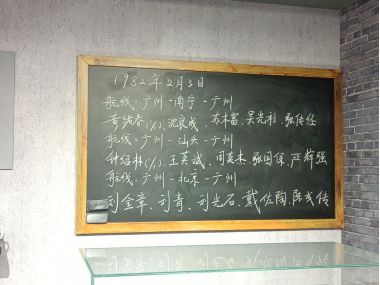 1982年2月5日
航线:广州-南宁-广州
黄治春(八)、沈良成、苏木富、吴光利、张传经
航线:广州-汕头-广州
钟绍林(八)、王英斌、周英杰、张国保、严辉强
航线:广州-北京-广州
刘金章、刘青、刘光石、戴佐陶、陈成传